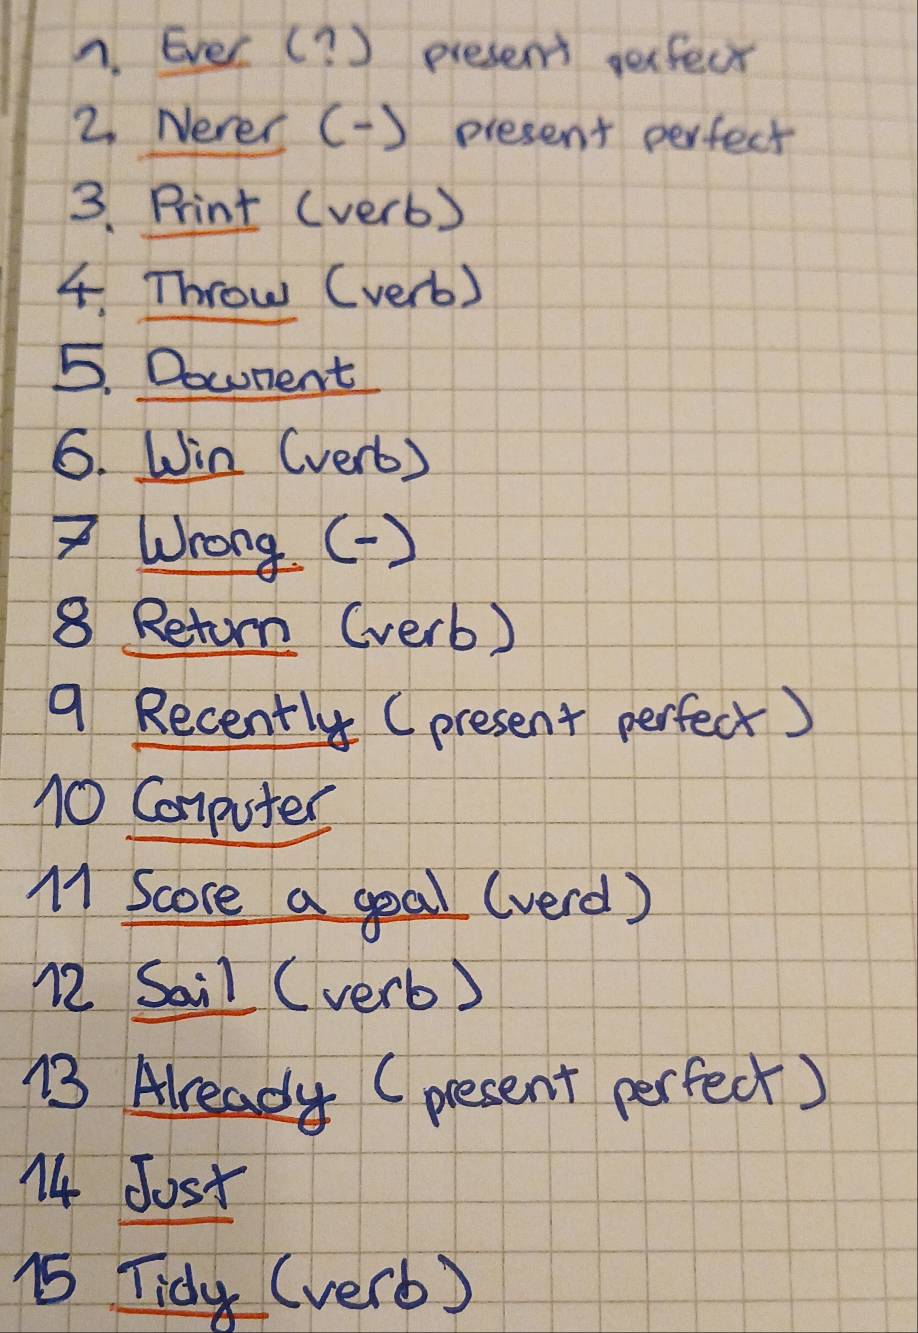 1. Ever (?) present perfect
2. Never (-) present perfect
3. Print (verb)
4. Throw (verb)
5. Document
6. Win (verb)
7 Wrong. (-)
8 Return (verb)
9 Recently (present perfect)
10 Computer
11 Score a goal (verd)
12 Sail (verb)
13 Already (present perfect)
14 Just
15 Tidy (verb)